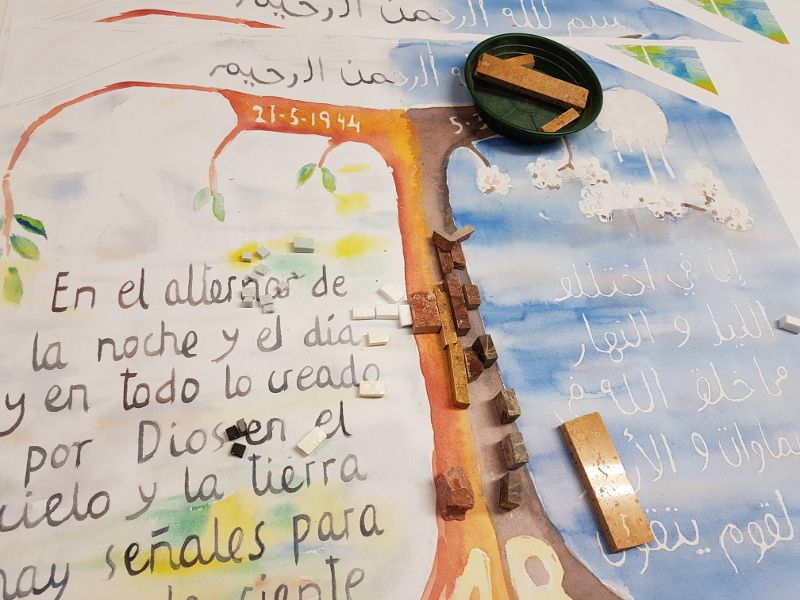 بسم لله الرحمن الرحيم
الرحمن الرحيم
21-5-1944
5-3
En el alternar de
la noche y el día,
y en todo lo creado
por Dios en el
cielo y la tierra
hay señales para
إن في اختلف
الليل و النهار
ما خلق الله في
سماوات و الأر
لقوم يتقون